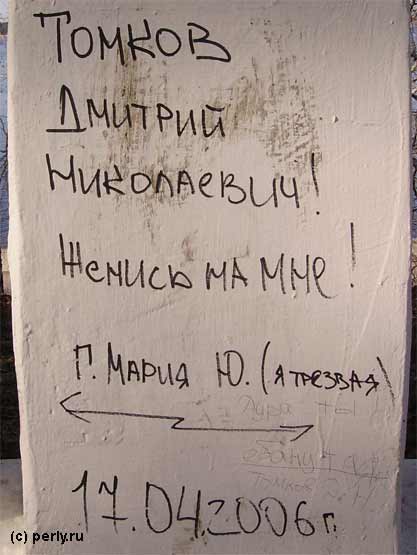 Томков
Дмитрий
Николаевич!
Женись на мне!
П. Мария Ю. (я трезвая)
Дура ты
ебанутая
Томков
17.04.2006 г.
(c) perly.ru